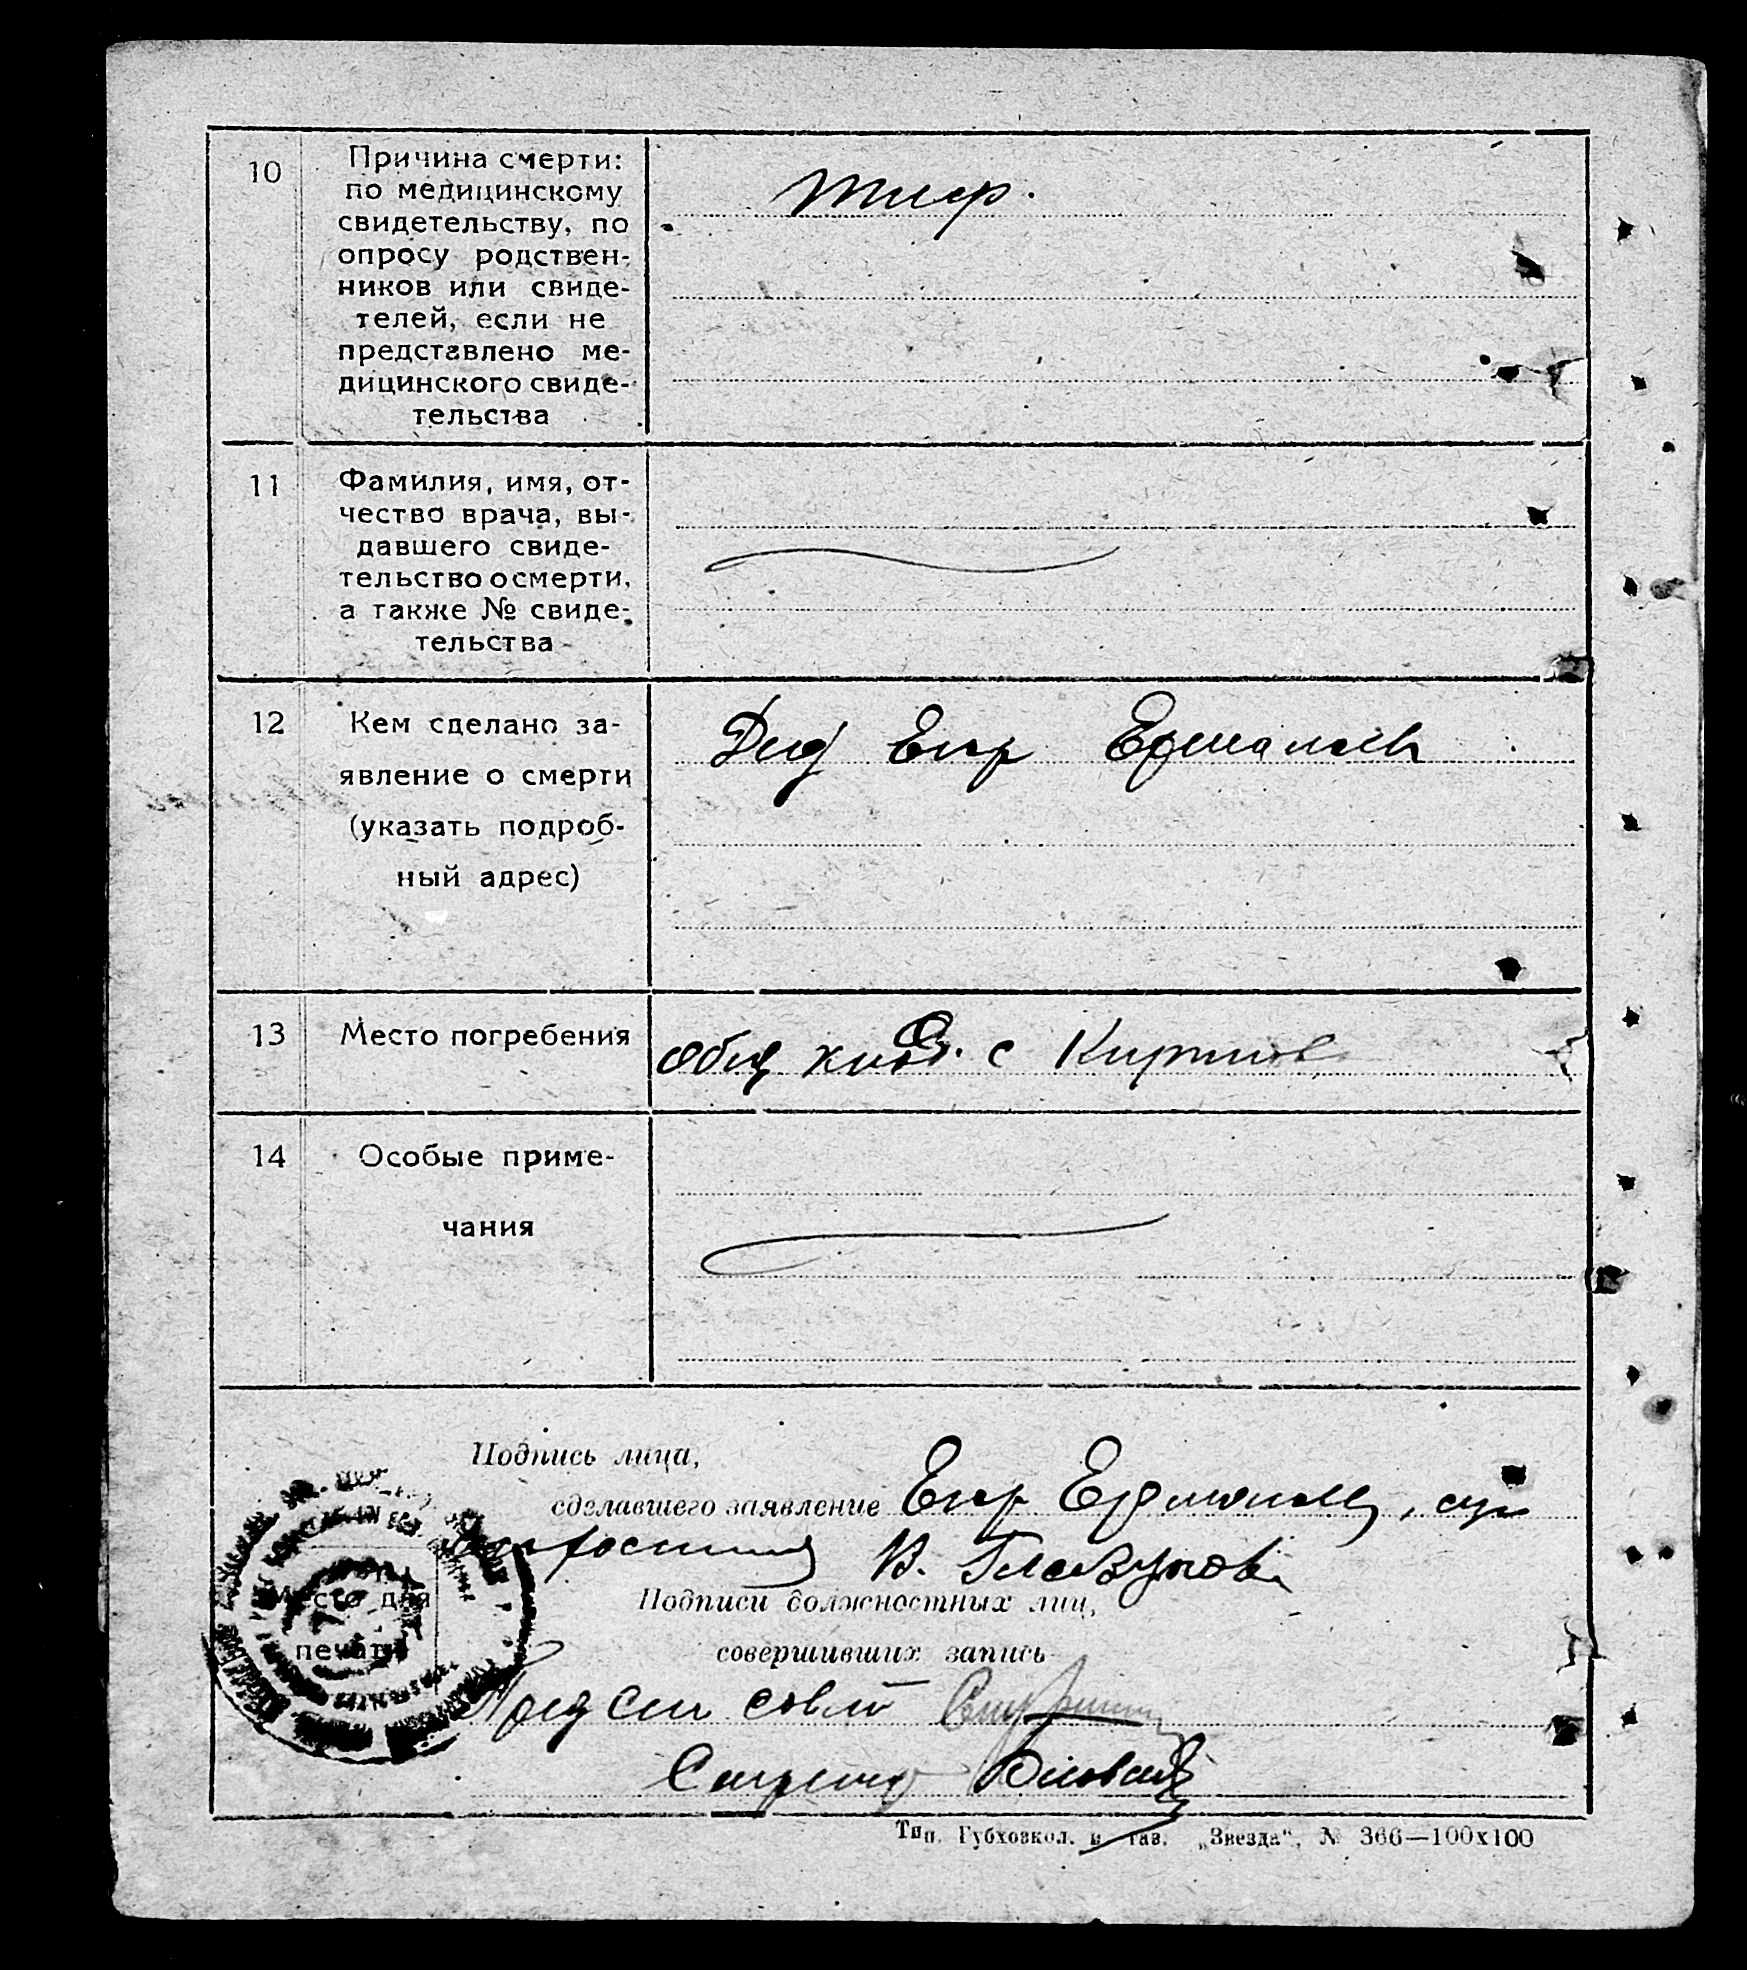 10
Причина смерти:
по медицинскому
свидетельству, по
опросу родствен-
ников или свиде-
телей, если не
представлено ме-
дицинского свиде-
тельства
тиф.
11
Фамилия, имя, от-
чество врача, вы-
давшего свиде-
тельство о смерти,
а также № свиде-
тельства
12
Кем сделано за-
явление о смерти
(указать подроб-
ный адрес)
Дед Егор
13
Место погребения
Общ кладб. с
14
Особые приме-
чания
Подпись лица,
сделавшего заявление Егор
В. Глазунов
Место для
печати
Подписи должностных лиц,
совершивших запись
Пред сель совета
Секретарь
Тип. Губхозкол. и газ. „Звезда“, № 366—100х100